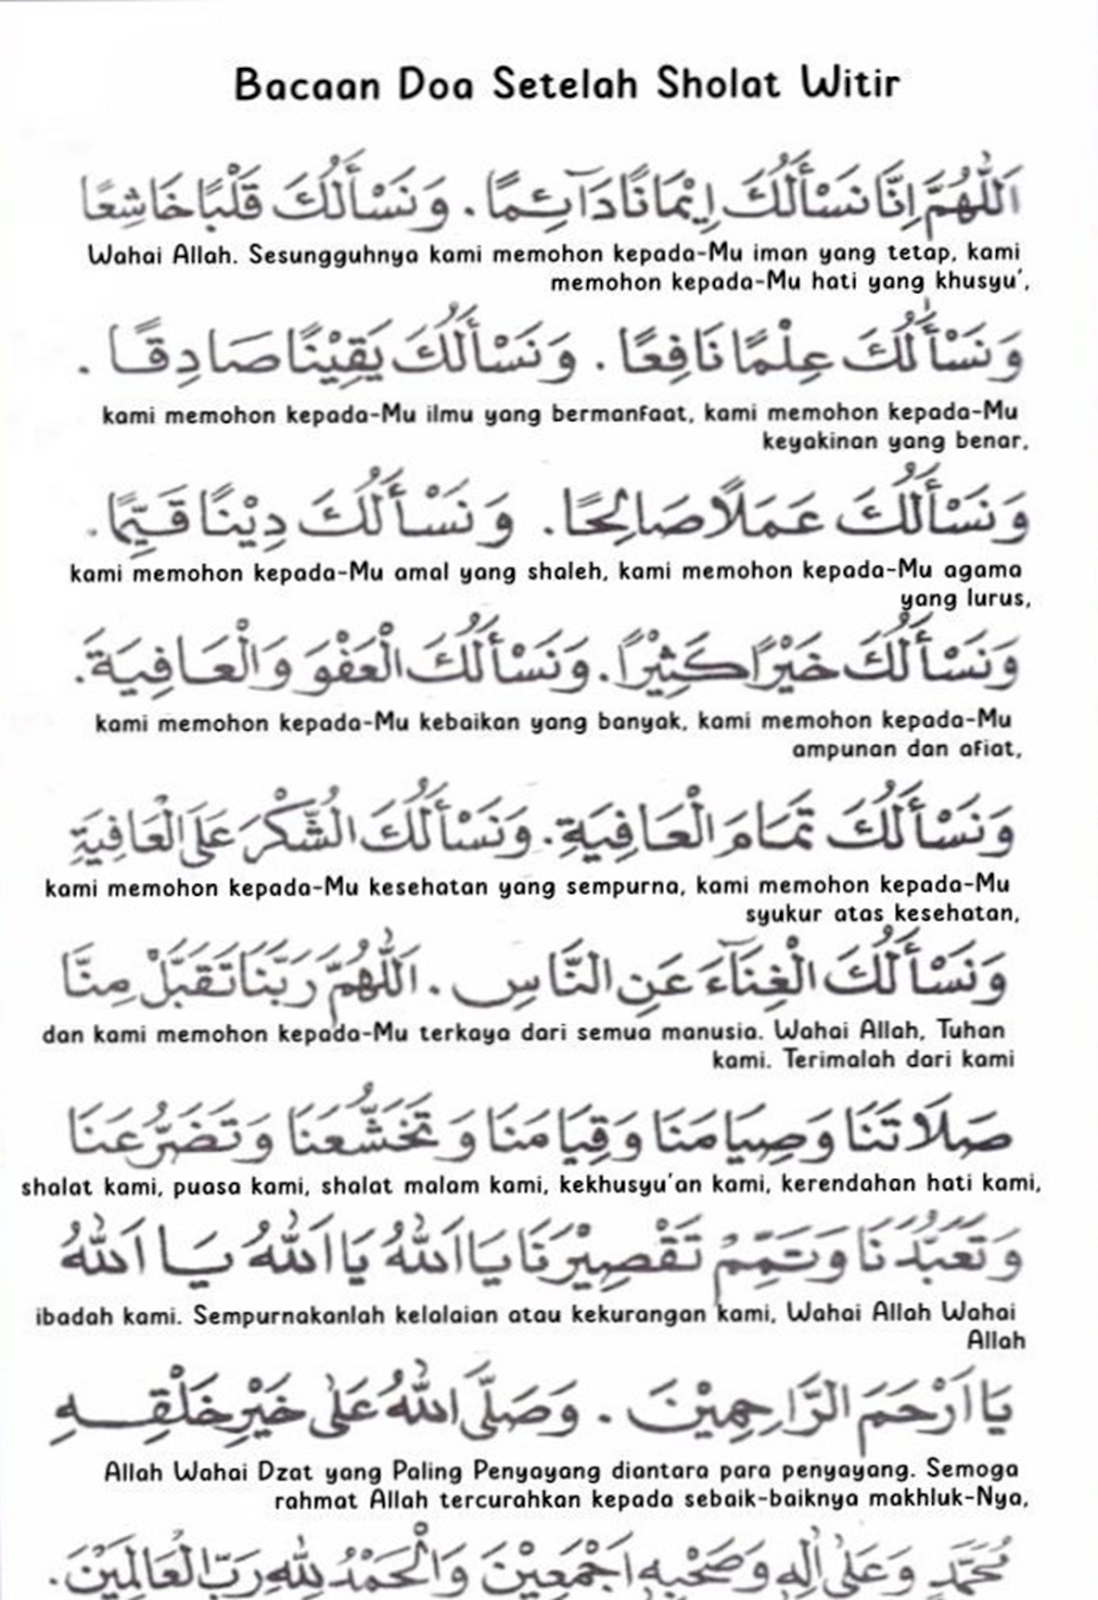 Bacaan Doa Setelah Sholat Witir
اَللّٰهُمَّ اِنَّا نَسْأَلُكَ اِيْمَانًا دَآئِمًا . وَنَسْأَلُكَ قَلْبًا خَاشِعًا
Wahai Allah. Sesungguhnya kami memohon kepada-Mu iman yang tetap, kami
memohon kepada-Mu hati yang khusyu',
وَنَسْأَلُكَ عِلْمًا نَافِعًا . وَنَسْأَلُكَ يَقِيْنًا صَادِقًا .
kami memohon kepada-Mu ilmu yang bermanfaat, kami memohon kepada-Mu
keyakinan yang benar,
وَنَسْأَلُكَ عَمَلًا صَالِحًا . وَنَسْأَلُكَ دِيْنًا قَيِّمًا .
kami memohon kepada-Mu amal yang shaleh, kami memohon kepada-Mu agama
yang lurus,
وَنَسْأَلُكَ خَيْرًا كَثِيْرًا . وَنَسْأَلُكَ الْعَفْوَ وَالْعَافِيَةَ .
kami memohon kepada-Mu kebaikan yang banyak, kami memohon kepada-Mu
ampunan dan afiat,
وَنَسْأَلُكَ تَمَامَ الْعَافِيَةِ . وَنَسْأَلُكَ الشُّكْرَ عَلَى الْعَافِيَةِ
kami memohon kepada-Mu kesehatan yang sempurna, kami memohon kepada-Mu
syukur atas kesehatan,
وَنَسْأَلُكَ الْغِنَآءَ عَنِ النَّاسِ . اَللّٰهُمَّ رَبَّنَا تَقَبَّلْ مِنَّا
dan kami memohon kepada-Mu terkaya dari semua manusia. Wahai Allah, Tuhan
kami. Terimalah dari kami
صَلَاتَنَا وَصِيَامَنَا وَقِيَامَنَا وَتَخَشُّعَنَا وَتَضَرُّعَنَا
shalat kami, puasa kami, shalat malam kami, kekhusyu'an kami, kerendahan hati kami,
وَتَعَبُّدَنَا وَتَمِّمْ تَقْصِيْرَنَا يَا اَللّٰهُ يَا اَللّٰهُ يَا اَللّٰهُ
ibadah kami. Sempurnakanlah kelalaian atau kekurangan kami, Wahai Allah Wahai
Allah
يَا اَرْحَمَ الرَّاحِمِيْنَ . وَصَلَّى اللّٰهُ عَلٰى خَيْرِ خَلْقِهِ
Allah Wahai Dzat yang Paling Penyayang diantara para penyayang. Semoga
rahmat Allah tercurahkan kepada sebaik-baiknya makhluk-Nya,
مُحَمَّدٍ وَعَلٰى اٰلِهِ وَصَحْبِهِ اَجْمَعِيْنَ وَالْحَمْدُ لِلّٰهِ رَبِّ الْعَالَمِيْنَ .